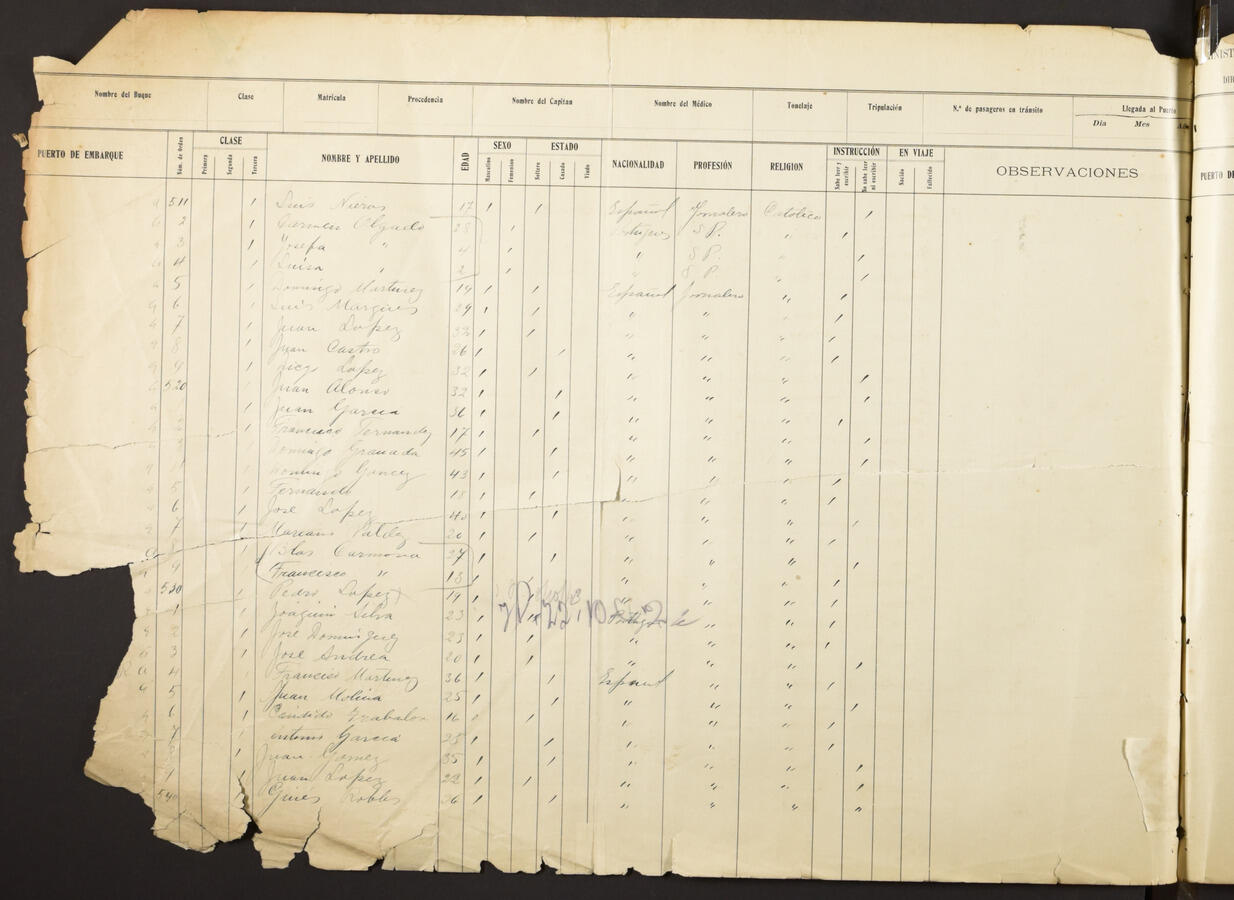 Nombre del Buque Clase Matrícula Procedencia Nombre del Capitan Nombre del Médico Tonelaje Tripulación N.º de pasageros en tránsito Llegada al Puerto
Dia Mes
PUERTO DE EMBARQUE Núm. de Orden CLASE Primera Segunda Tercera NOMBRE Y APELLIDO EDAD SEXO Masculino Femenino ESTADO Soltero Casado Viudo NACIONALIDAD PROFESIÓN RELIGION INSTRUCCIÓN Sabe leer y escribir No sabe leer ni escribir EN VIAJE Nacido Fallecido OBSERVACIONES
PUERTO DE
511 Luis Nieras 17 Español Jornalero Católico
2 Carmen Olgado 28 S P. "
3 Josefa " 4 " S P. "
4 Luisa " 2 " S P. "
5 Domingo Martinez 19 Español Jornalero "
6 Luis Marques 29 " " "
7 Juan Lopez 32 " " "
8 Juan Castro 26 " " "
9 Diego Lopez 32 " " "
520 Juan Alonso 32 " " "
Juan Garcia 36 " " "
Francisco Fernandez 17 " " "
Domingo Granada 45 " " "
Domingo 43 " " "
5 Fernando 18 " " "
6 José Lopez 40 " " "
7 Mariano 20 " " "
Blas Carmona 27 " " "
9 Francisco " 18 " " "
530 Pedro Lopez 19 " " "
1 Joaquin Silva 23 " "
2 José Dominguez 23 " " "
3 José Andrea 20 " " "
4 Francisco Martinez 36 Español " "
5 Juan Molina 25 " " "
6 Candido 16 " " "
7 Antonio Garcia 25 " " "
Juan Gomez 35 " " "
Juan Lopez 22 " " "
540 Ginés Robles 26 " " "